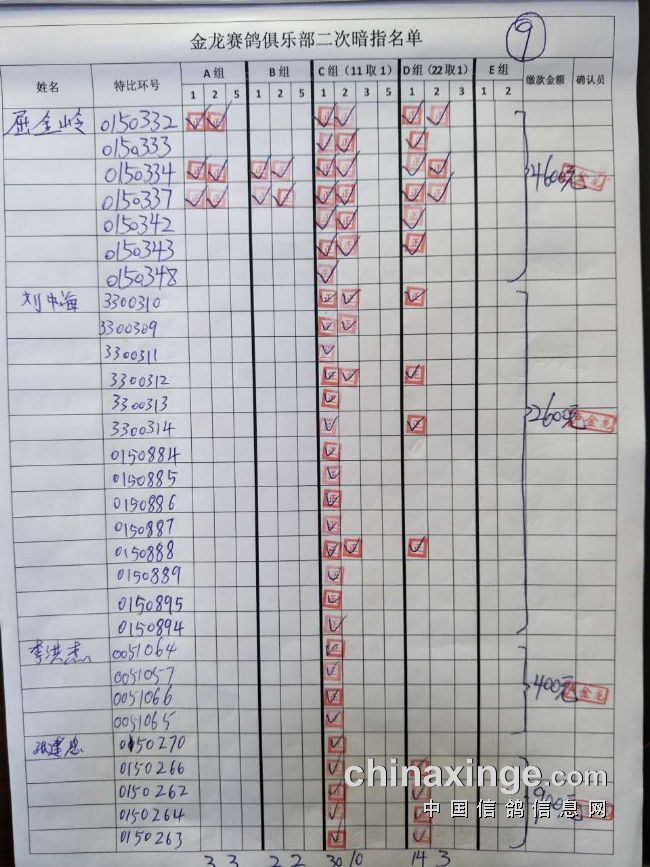 金龙赛鸽俱乐部二次暗指名单
9
姓名 特比环号 A 组 B 组 C 组（11 取 1） D 组（22 取 1） E 组 缴款金额 确认员
1 2 5 1 2 5 1 2 3 5 1 2 3 1 2
屈金岭 0150332
0150333
0150334 4600元
0150337
0150342
0150343
0150348
刘中海 3300310
3300309
3300311
3300312
3300313
3300314 2600元
0150884
0150885
0150886
0150887
0150888
0150889
0150895
0150894
李洪杰 0051064
0051057
0051066 400元
0051065
0150270
0150266
0150262 900元
0150264
0150263
3 3 2 2 30 10 14 3
chinaxinge.com
中国信鸽信息网